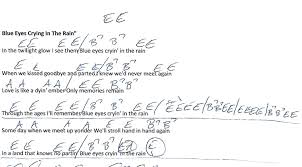 E E
Blue Eyes Crying In The Rain"
E E E E / B7 B7 E E
In the twilight glow I see them Blue eyes cryin' in the rain
E E E E / B7 B7 E E
When we kissed goodbye and parted I knew we'd never meet again
A A A A / E E B7 B7
Love is like a dyin' ember Only memories remain
E E E E / B7 B7 E E / E E E E / B7 B7 E E / E E E E / B7 B7 E E
Through the ages I'll remember Blue eyes cryin' in the rain
A A A A E E B7 B7
Some day when we meet up yonder We'll stroll hand in hand again
E E E E / B7 B7 E E E
In a land that knows no partin' Blue eyes cryin' in the rain